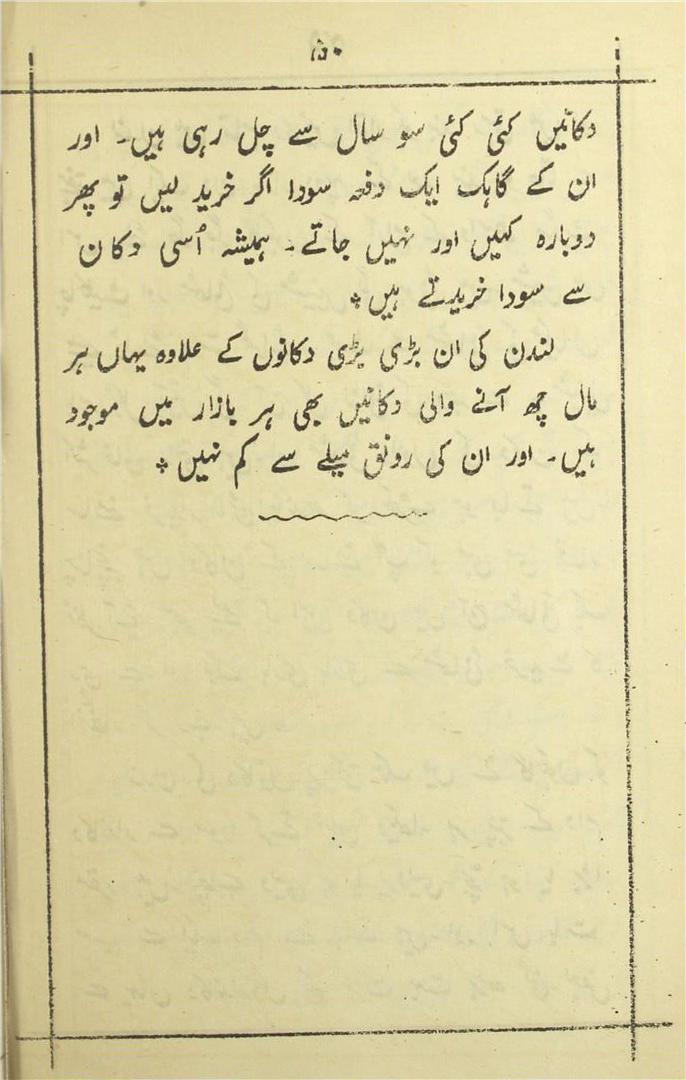 ۱۵۰
دکانیں کئی کئی سو سال سے چل رہی ہیں۔ اور
ان کے گاہک ایک دفعہ سودا اگر خرید لیں تو پھر
دوبارہ کہیں اور نہیں جاتے۔ ہمیشہ اُسی دکان
سے سودا خریدتے ہیں *
لندن کی ان بڑی بڑی دکانوں کے علاوہ یہاں ہر
مال چھ آنے والی دکانیں بھی ہر بازار میں موجود
ہیں۔ اور ان کی رونق میلے سے کم نہیں *